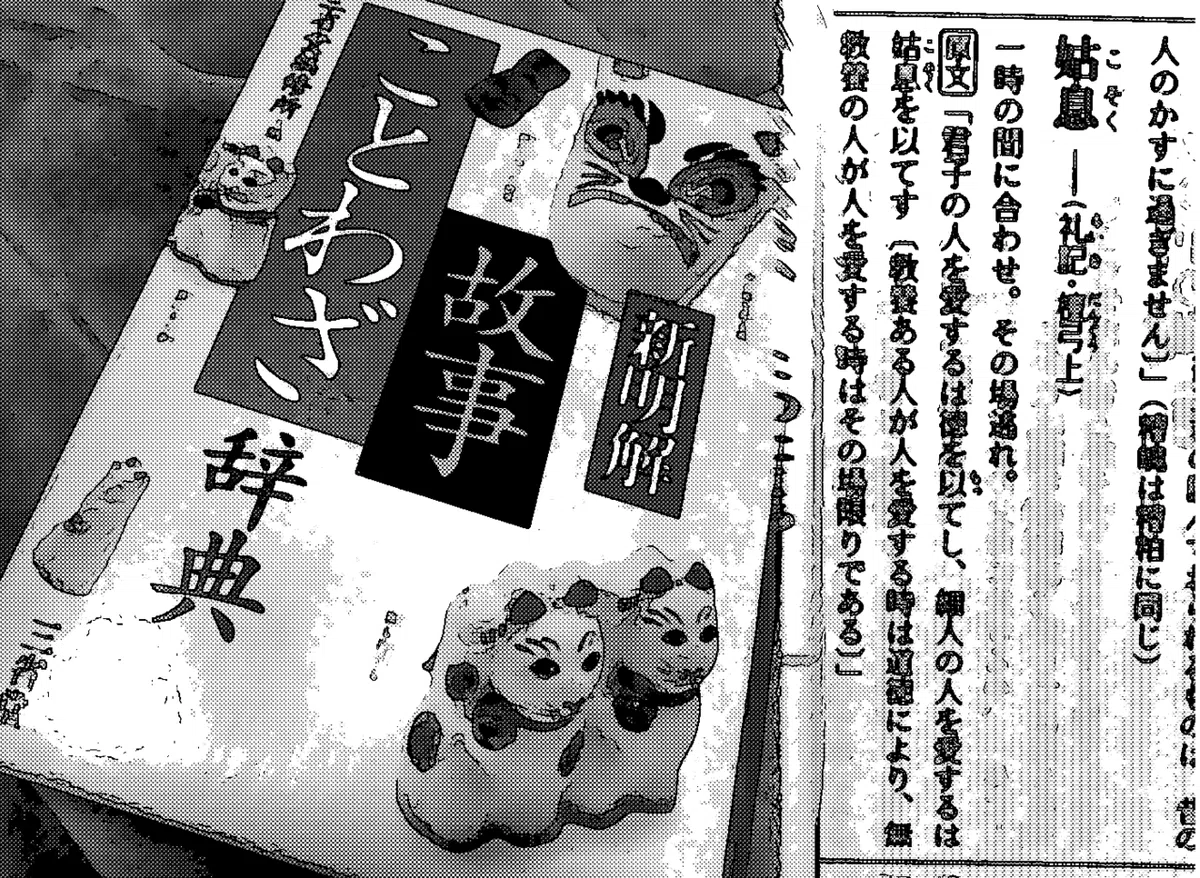 ことわざ
故事
新明解
辞典
三省堂
人のかすに過ぎません〕」（糟魄は糟粕に同じ）
姑息 ――（礼記・檀弓上）
こそく
一時の間に合わせ。その場逃れ。
原文「君子の人を愛するは徳を以てし、細人の人を愛するは
姑息を以てす〔教養ある人が人を愛する時は道徳により、無
教養の人が人を愛する時はその場限りである〕」